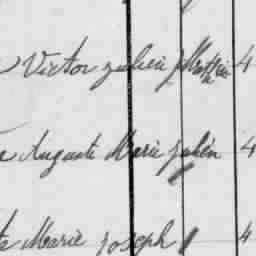 Victor julien 4
Auguste Marie julien 4
Marie joseph 4